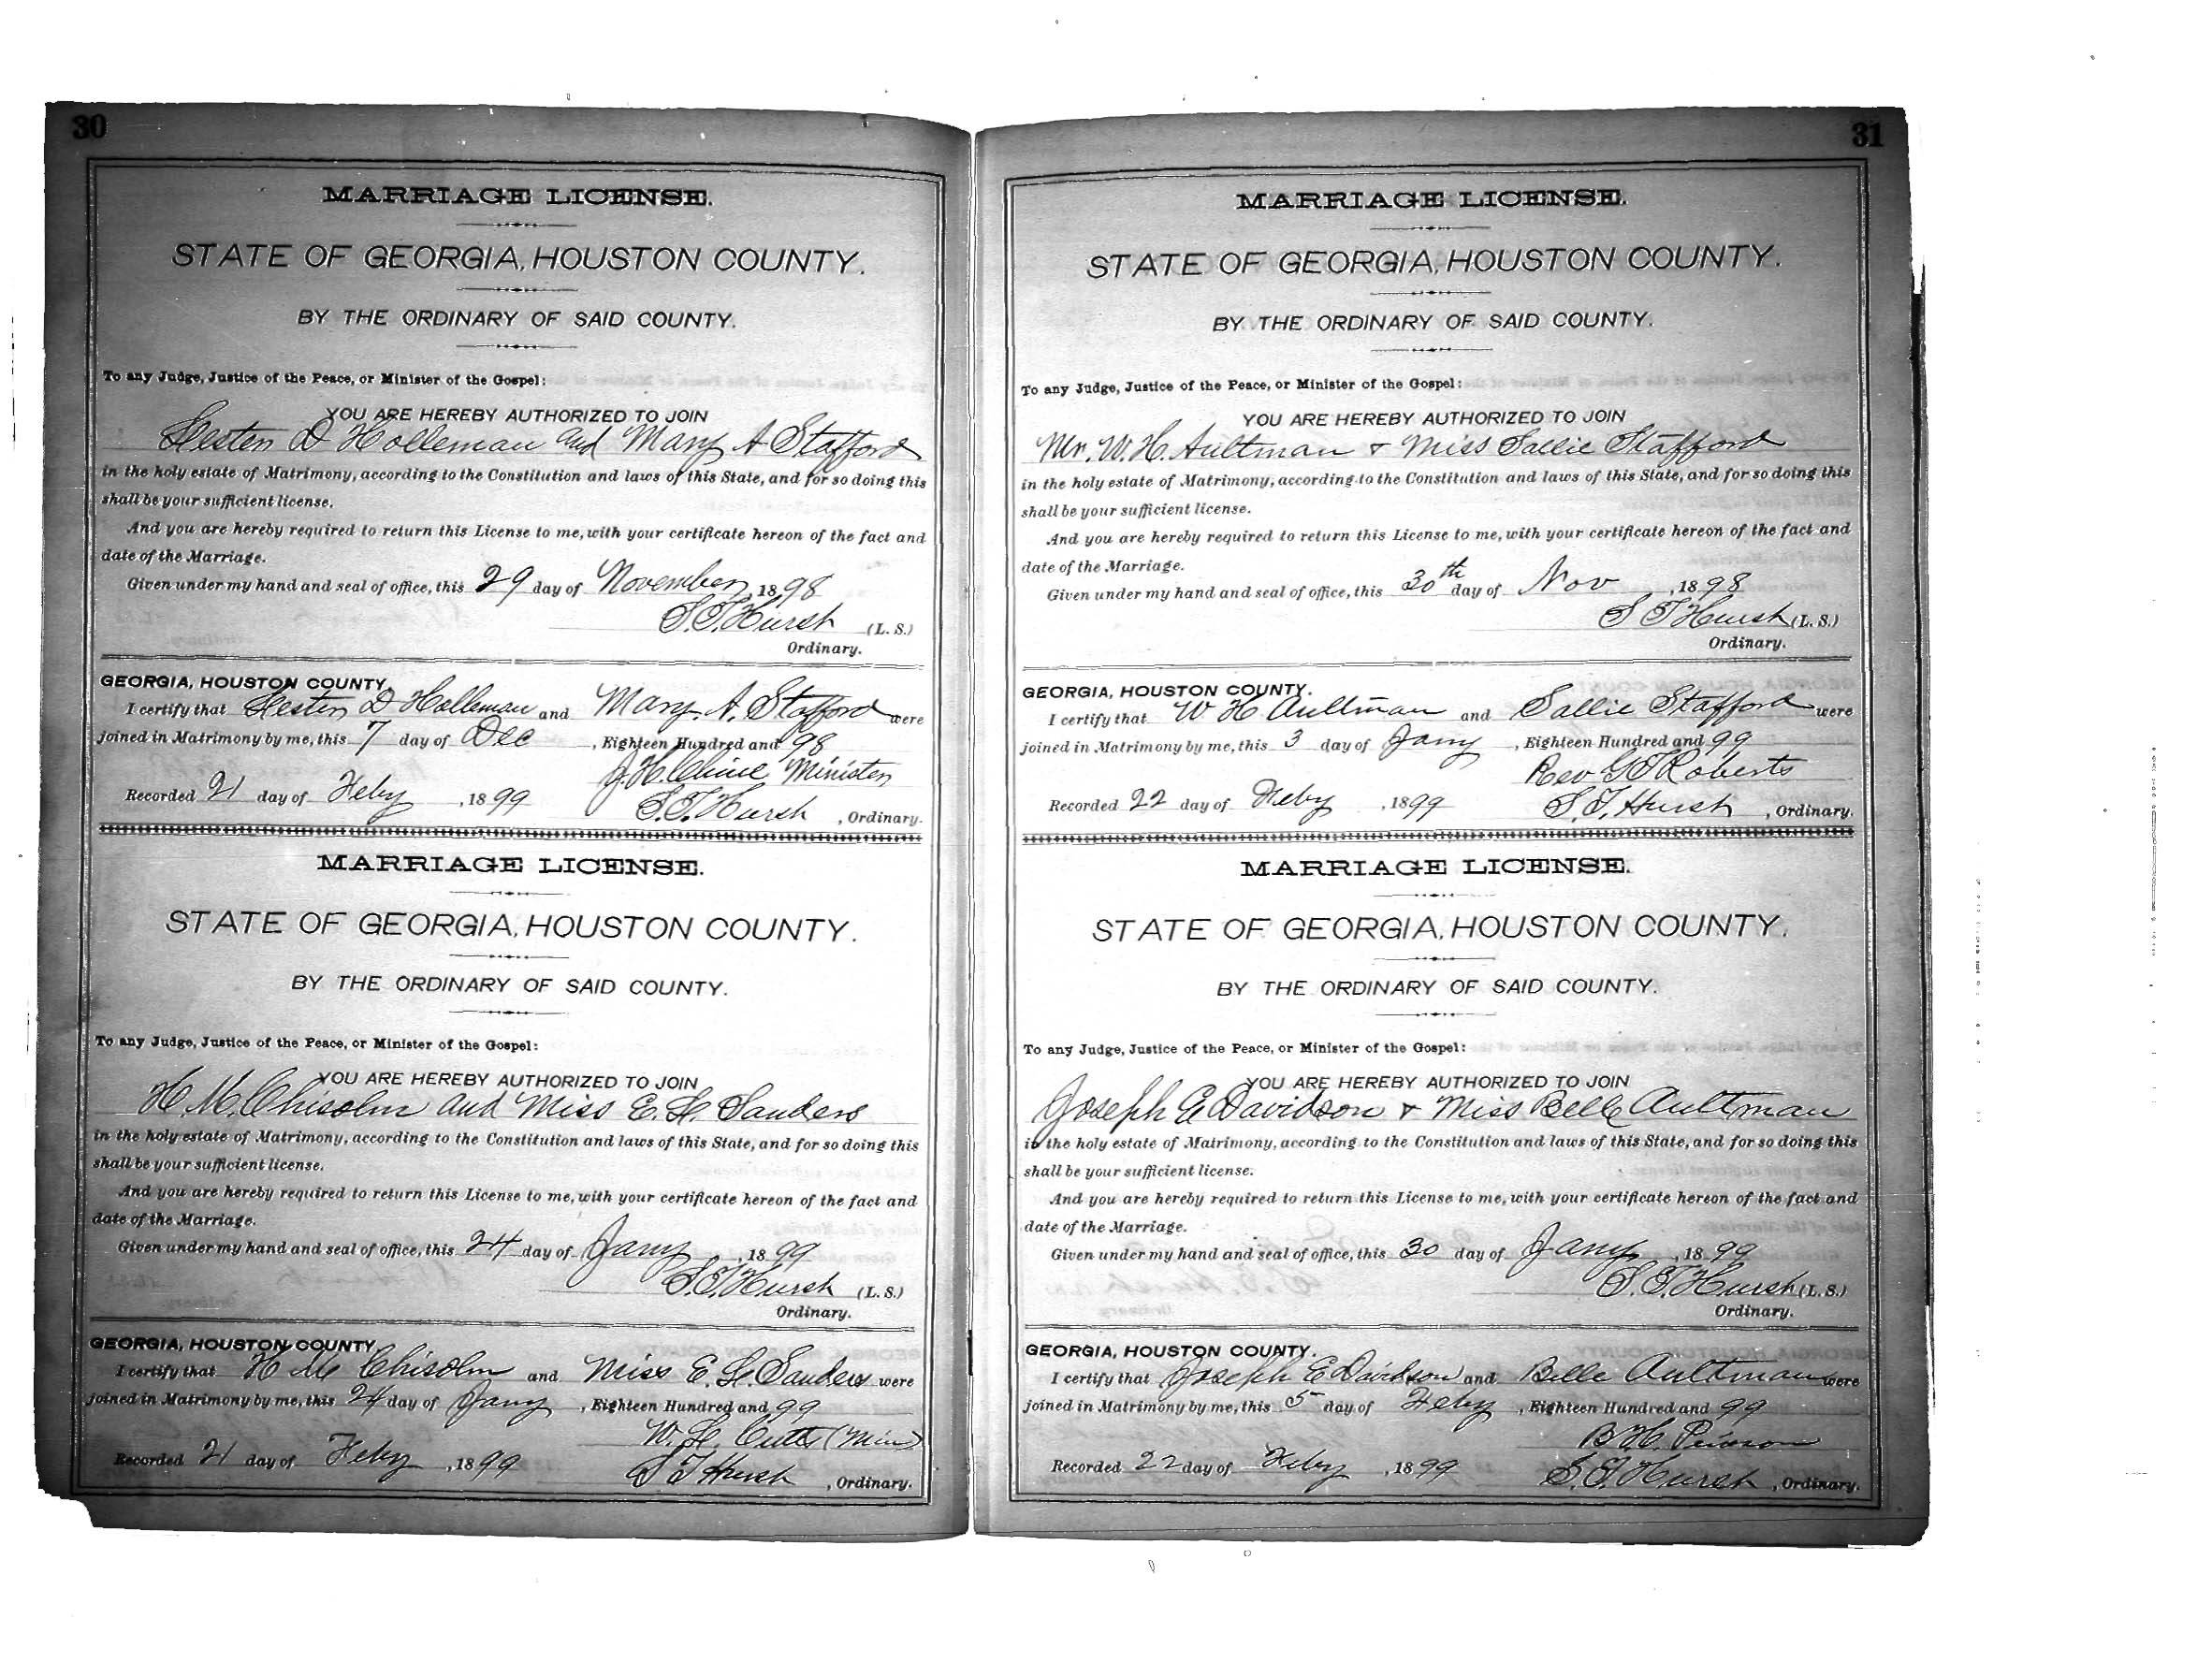 30
MARRIAGE LICENSE.
STATE OF GEORGIA, HOUSTON COUNTY.
BY THE ORDINARY OF SAID COUNTY.
To any Judge, Justice of the Peace, or Minister of the Gospel:
YOU ARE HEREBY AUTHORIZED TO JOIN
D Holleman and Mary A Stafford
in the holy estate of Matrimony, according to the Constitution and laws of this State, and for so doing this
shall be your sufficient license.
And you are hereby required to return this License to me, with your certificate hereon of the fact and
date of the Marriage.
Given under my hand and seal of office, this 29 day of November, 1898
S.T. Hursh (L. S.)
Ordinary.
GEORGIA, HOUSTON COUNTY.
I certify that D Holleman and Mary. A. Stafford were
joined in Matrimony by me, this 7 day of Dec, Eighteen Hundred and 98
J.H. Cline Minister
Recorded 21 day of Feby, 1899 S.T. Hursh, Ordinary.
MARRIAGE LICENSE.
STATE OF GEORGIA, HOUSTON COUNTY.
BY THE ORDINARY OF SAID COUNTY.
To any Judge, Justice of the Peace, or Minister of the Gospel:
YOU ARE HEREBY AUTHORIZED TO JOIN
H. M. Chisolm and Miss E. L. Sanders
in the holy estate of Matrimony, according to the Constitution and laws of this State, and for so doing this
shall be your sufficient license.
And you are hereby required to return this License to me, with your certificate hereon of the fact and
date of the Marriage.
Given under my hand and seal of office, this 24 day of Jany, 1899
S.T. Hursh (L. S.)
Ordinary.
GEORGIA, HOUSTON COUNTY.
I certify that H M Chisolm and Miss E. L. Sanders were
joined in Matrimony by me, this 24 day of Jany, Eighteen Hundred and 99
W. L. Cutts (Min)
Recorded 21 day of Feby, 1899 S T Hursh, Ordinary.
31
MARRIAGE LICENSE.
STATE OF GEORGIA, HOUSTON COUNTY.
BY THE ORDINARY OF SAID COUNTY.
To any Judge, Justice of the Peace, or Minister of the Gospel:
YOU ARE HEREBY AUTHORIZED TO JOIN
Mr. W. H. Aultman & Miss Sallie Stafford
in the holy estate of Matrimony, according to the Constitution and laws of this State, and for so doing this
shall be your sufficient license.
And you are hereby required to return this License to me, with your certificate hereon of the fact and
date of the Marriage.
Given under my hand and seal of office, this 30th day of Nov, 1898
S T Hursh (L. S.)
Ordinary.
GEORGIA, HOUSTON COUNTY.
I certify that W H Aultman and Sallie Stafford were
joined in Matrimony by me, this 3 day of Jany, Eighteen Hundred and 99
Rev G T Roberts
Recorded 22 day of Feby, 1899 S. T. Hursh, Ordinary.
MARRIAGE LICENSE.
STATE OF GEORGIA, HOUSTON COUNTY.
BY THE ORDINARY OF SAID COUNTY.
To any Judge, Justice of the Peace, or Minister of the Gospel:
YOU ARE HEREBY AUTHORIZED TO JOIN
Joseph E Davidson & Miss Belle Aultman
in the holy estate of Matrimony, according to the Constitution and laws of this State, and for so doing this
shall be your sufficient license.
And you are hereby required to return this License to me, with your certificate hereon of the fact and
date of the Marriage.
Given under my hand and seal of office, this 30 day of Jany, 1899
S. T. Hursh (L. S.)
Ordinary.
GEORGIA, HOUSTON COUNTY.
I certify that Joseph E Davidson and Belle Aultman were
joined in Matrimony by me, this 5 day of Feby, Eighteen Hundred and 99
B. H.
Recorded 22 day of Feby, 1899 S. T. Hursh, Ordinary.